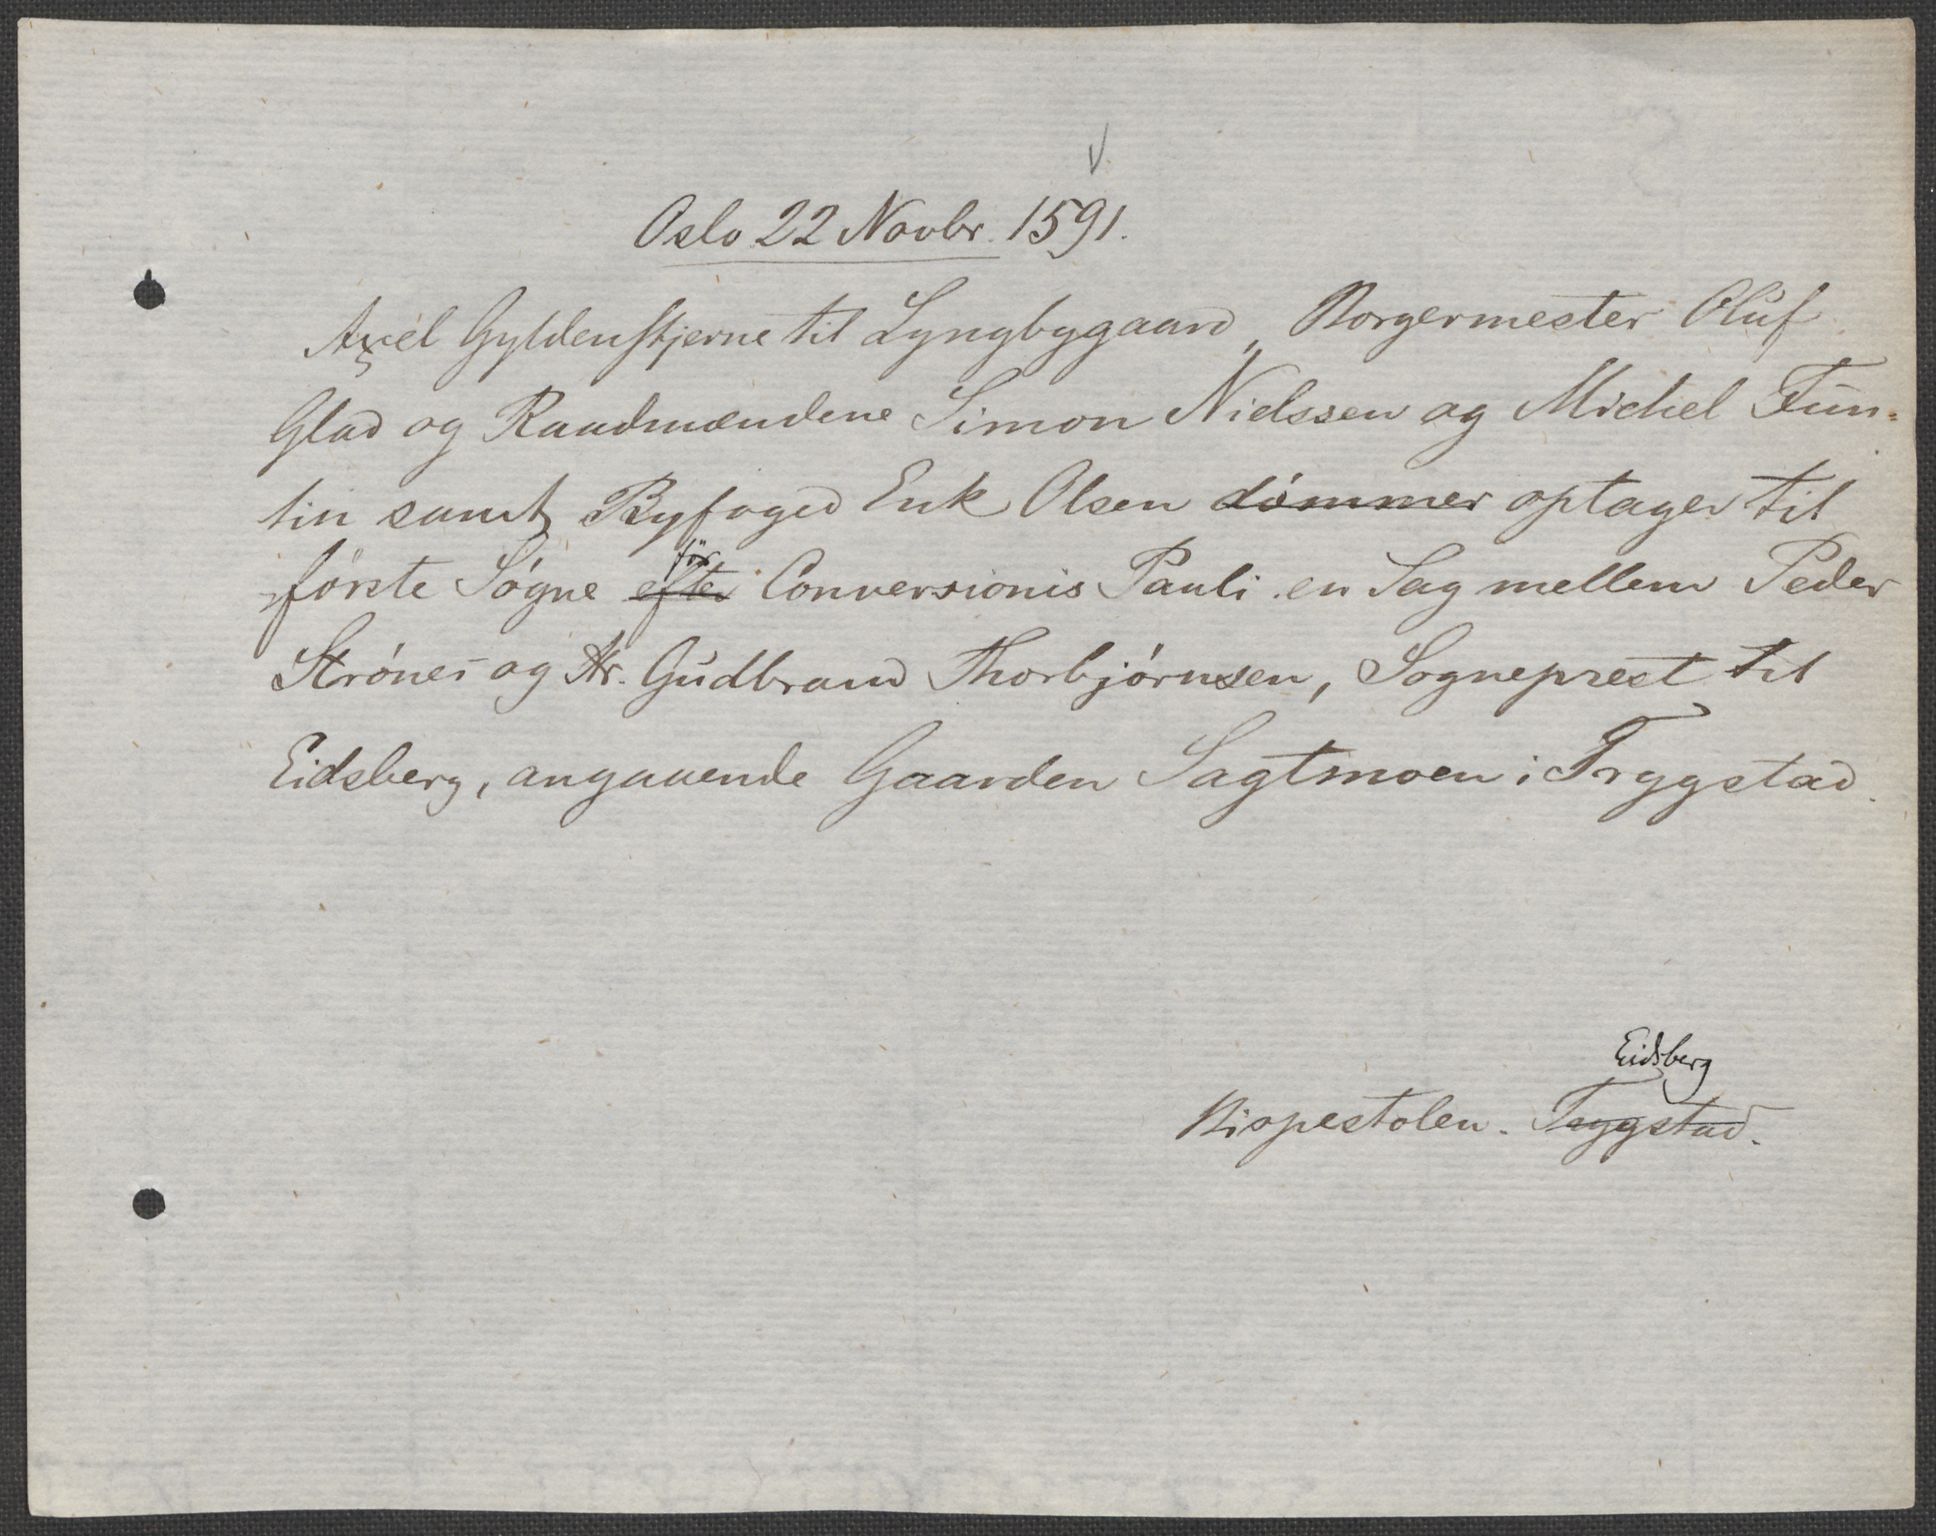 Oslo 22 Novbr. 1591.
Axel Gyldenstjerne til Lyngbygaard, Borgermester Oluf
Glad og Raadmændene Simon Nielssen og Michel Fun-
tin samt Byfoged Erik Olsen dömmer optager til
för
förste Søgne efter Conversionis Pauli en Sag mellem Peder
Strönes og Hr. Gudbrand Thorbjörnsen, Sogneprest til
Eidsberg, angaaende Gaarden Sagtmoen i Trygstad.
Eidsberg
Bispestolen. Trygstad.